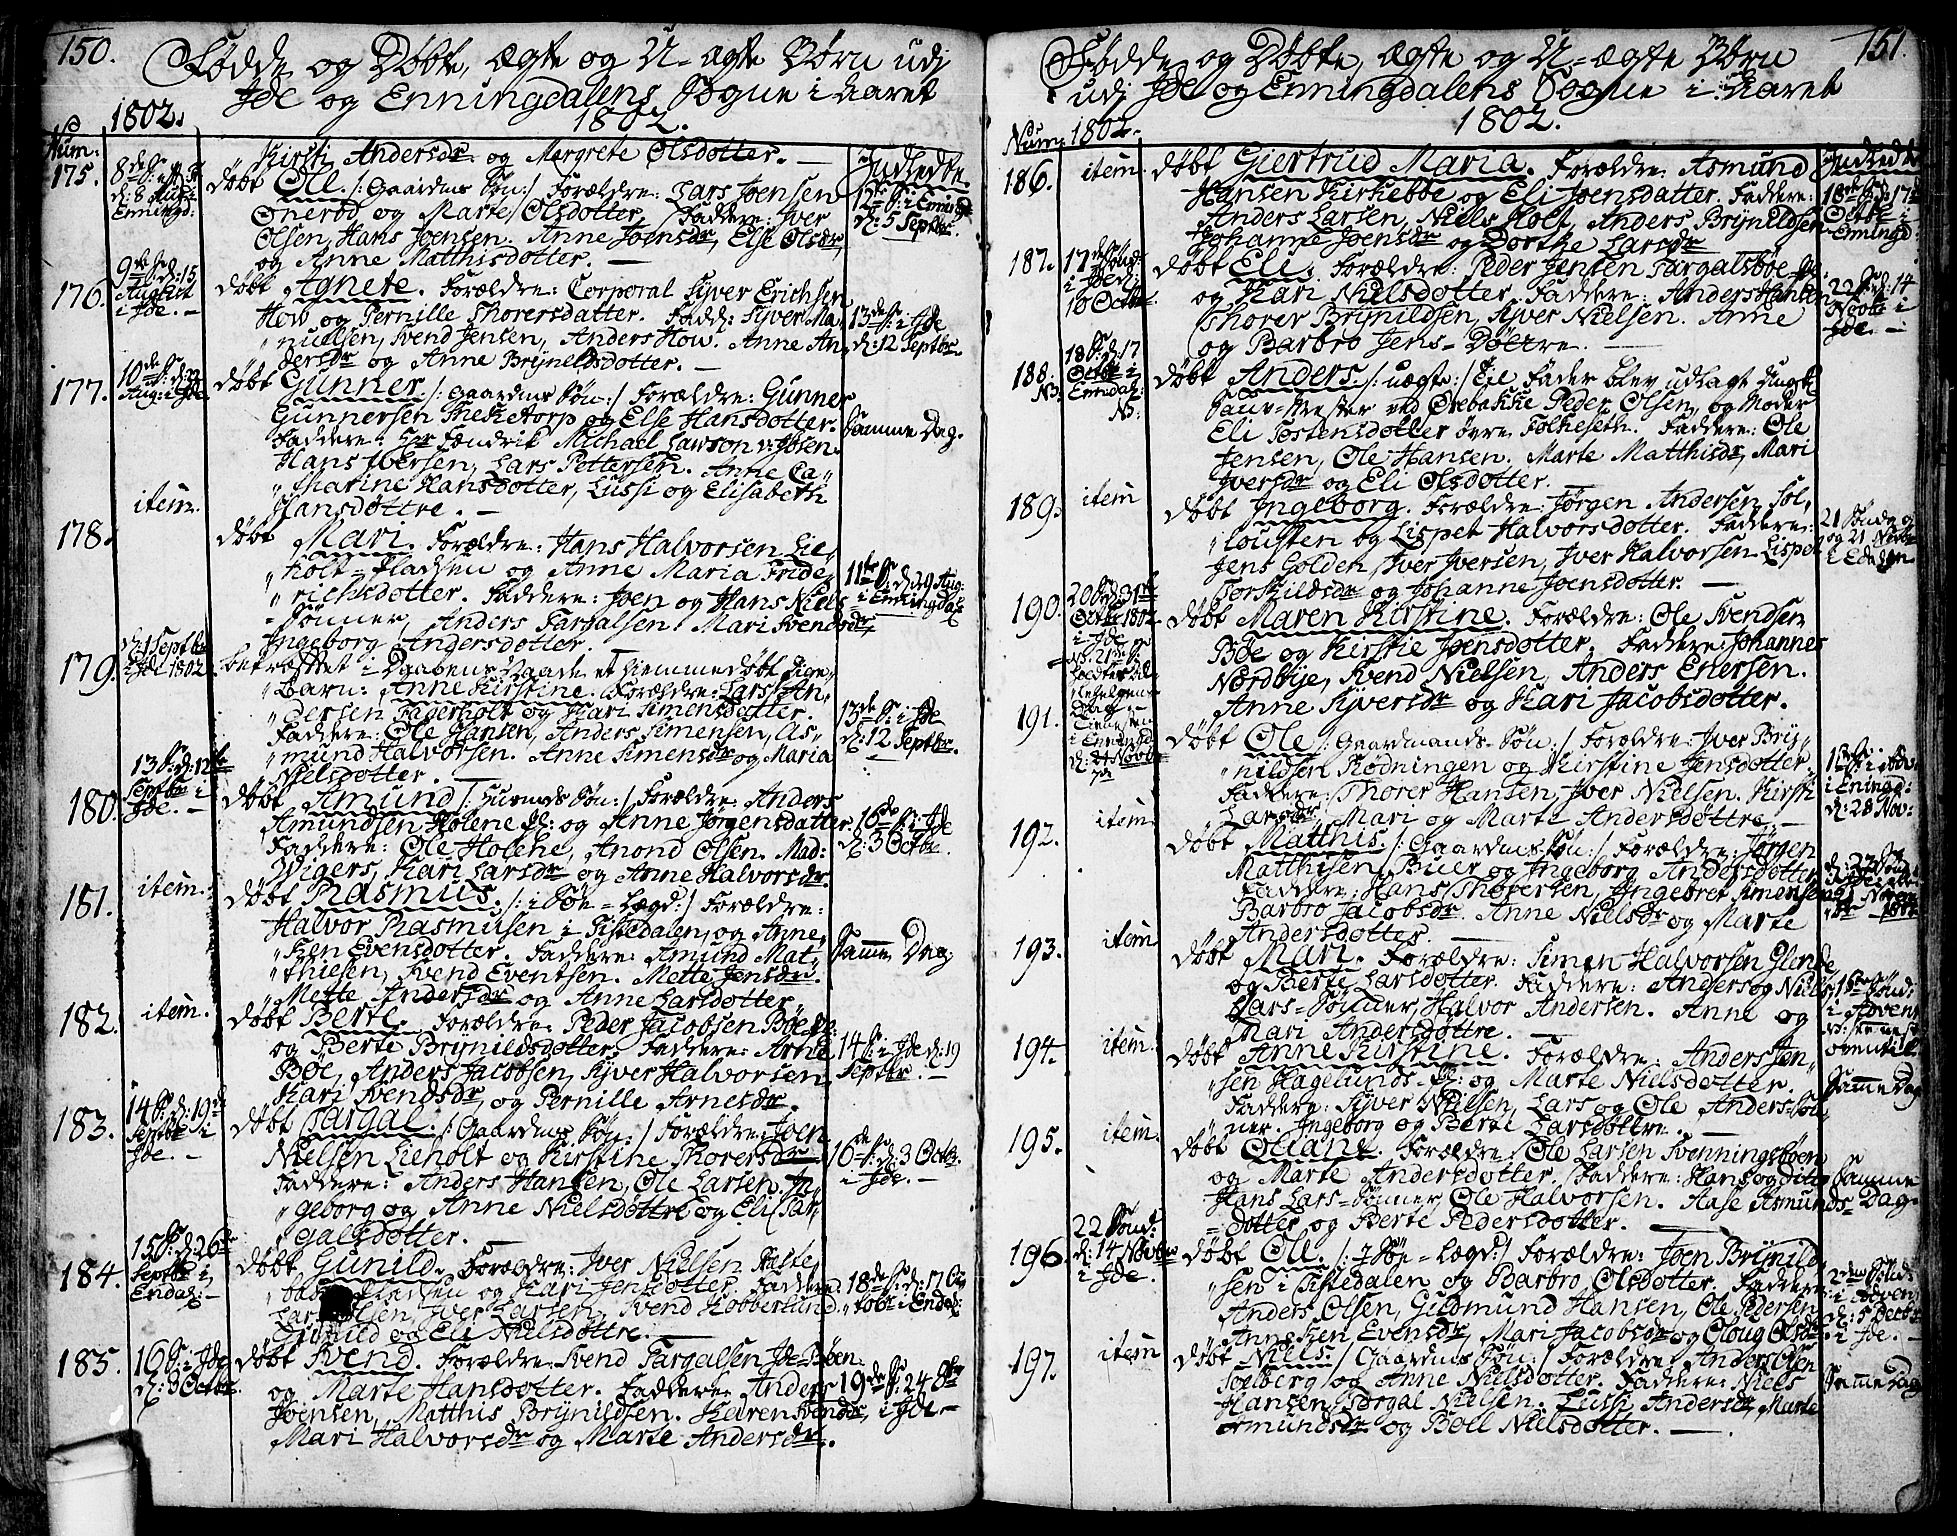 150.
Fødde og Døbte, ægte og U-ægte Børn udj
Jde og Enningdalens Sogne i Aaret
1802.
1802.
Num:
Kirsti Andersdr og Margrete Olsdotter. —
Indledde.
175.
d: 8 Aug: i
Enningd:
døbt Ole /: Gaardms Søn :/ Forældre: Lars Joensen
Ønerød og Marte Olsdotter. Faddere: Jver
Olsen, Hans Joensen. Anne Joensdr, Else Olsdr,
og Anne Matthisdotter. —
12te S: i Enningd:
d: 5 Septbr.
176.
9de S: d: 15
August
i Jde. —
døbt Agnete. Forældre: Corporal Syver Erichsen
How og Pernille Thorersdatter. Fadd: Syver Ma„
„nuelsen, Svend Jensen, Anders How. Anne An„
dersdr og Anne Brÿnildsdotter. —
13de S: i Jde
d: 12 Septbr.
177.
10de S: d: 22
Aug: i Jde.
døbt Gunner /: Gaardms Søn :/ Forældre: Gunner
Gunnersen Theketorp og Else Hansdotter.
Faddere: Hr Fændrik Michael Lawson v: Ibsen
Hans Iversen, Lars Pettersen. Anne Ca„
„tharine Hansdotter, Lussi og Elisabeth
Hansdøttre. —
Samme Dag.
178.
item.
døbt Mari. Forældre: Hans Halvorsen Lie„
„holt-Pladsen og Anne Maria Fride„
„richsdotter. Faddere: Joen og Hans Niels
-Sønner, Anders Targalsen. Mari Svendsdr,
Ingeborg Andersdotter.
11te S: d: 29 Aug:
i Enningda:
179.
d: 1 Septbr
Jde 1802.
betræftet i Daabens Naade et hiemmedøbt Pige„
„Barn: Anne Kirstine. Forældre: Lars An„
„dersen Fagerholt og Kari Simensdatter.
Faddere: Ole Hansen, Anders Simensen, As„
mund Halvorsen. Anne Simensdr og Maria
Nielsdotter. —
13de S: i Jde
d: 12 Septbr.
180.
13 S: d: 12te
Septbr i
Jde. —
døbt Amund /: Huusms Søn :/ Forældre: Anders
Amundsen Holene Pl: og Anne Jørgensdatter.
Faddere: Ole Holene, Anond Olsen. Mad:
Wigers, Kari Larsdr og Anne Halvorsdr.
16de S: i Jde
d: 3 Octbr.
181.
item.
døbt Rasmus. /: i Søe-Lægd :/ Forældre:
Halvor Rasmusen i Tistedalen, og Anne„
„ken Evensdotter. Faddere: Asmund Mat„
„thiesen, Svend Eventsen. Mette Jensdr.
Mette Andersdr og Anne Larsdotter.
Samme Dag.
182.
item.
døbt Berte. Forældre: Peder Jacobsen Bøe Pl:
og Berte Brÿnildsdotter. Faddere: Arne
Bøe, Anders Jacobsen, Syver Halvorsen.
Kari Svendsdr og Pernille Arnesdr.
14 S: i Jde d: 19
Septbr. —
183.
14 S: d: 19de
Septbr i
Jde. —
døbt Targal. /: Gaardms Søn :/ Forældre: Joen
Nielsen Lieholt og Kirstine Thorersdr
Faddere: Anders Hansen, Ole Larsen. In„
„geborg og Anne Nielsdøttre og Eli Tar„
„galsdotter. —
16de S: d: 3 Octbr.
i Jde. —
184.
15 S: d: 26de
Septbr i
Endal: —
døbt Gunild. Forældre: Jver Nielsen
og Kari Jensdotter. Fadd:
Olsen, Jver Larsen, Svend Kobberlund.
Gunild og Eli Nielsdøttre. —
18de S: d: 17 Oc„
„tobr i Endal:
185.
16 S: i Jde
d: 3 Octbr.
døbt Svend. Forældre: Svend Targalsen Jde-Bøen
og Marte Hansdotter. Faddere: Anders
Joensen, Matthis Brÿnildsen. Karen Svendsdr,
Mari Halvorsdr og Marte Andersdr.
19de S: 24 Octbr
i Jde. —
151.
Fødde og Døbte, ægte og U-ægte Børn
udj Jde og Enningdalens Sogne i Aaret
1802.
Num: 1802.
Indledde
186.
item.
døbt Giertrud Maria. Forældre: Asmund
Hansen Kirkebøe og Eli Joensdatter. Faddere:
Anders Larsen, Niels Holt, Anders Brÿnildsen
Johanne Joensdr og Dorthe Larsdr
18de S: d: 17de
Octbr i
Enningd:
187.
17de Sønd:
i Jde d:
10 Octbr.
døbt Eli. Forældre: Peder Jensen Targalsbøe Pl:
og Kari Nielsdotter. Faddere: Anders Hansen
Thorer Brÿnildsen, Syver Nielsen. Anne
og Barbro Jens-Døttre. —
22 S: d: 14
Novbr i
Jde. —
188.
NB.
18 S: d: 17
Octbr i
Ennidal:
NB:
døbt Anders. /: uægte :/ Til Fader blev udlagt Ungk:
Sauv-Mester ved Ørebakke Peder Olsen, og Moder
Eli Tostensdotter øvre Folkeseth. Faddere: Ole
Jensen, Ole Hansen. Marte Matthisdr, Mari
Jversdr og Eli Olsdotter. —
189.
item
døbt Ingeborg. Forældre: Jørgen Andersen Sol„
„lousten og Lispet Halvorsdotter. Faddere:
Jens Golden, Jver Jversen, Jver Halvorsen. Lispet
Torkildsdr og Johanne Joensdotter. —
21 Søndag
og 21 Novbr
i Edalen
190.
20 S: d: 31te
Octbr 1802
i Jde
døbt Maren Kirstine. Forældre: Ole Svendsen
Bøe og Kirstie Joensdotter. Faddere: Johannes
Nordbÿe, Svend Nielsen, Anders Enersen.
Anne Syversdr og Kari Jacobsdotter.
191.
NB. 21de S:
holdtes Al„
„lehelgens
Dag —
Tienesten
i Enningd:
d: 7 Novbr
døbt Ole /: Gaardmands-Søn :/ Forældre: Jver Brÿ„
„nildsen Rødningen og Kirstine Jensdotter.
Faddere: Thorer Hansen, Jver Nielsen. Kirsti
Larsdr, Mari og Marte Andersdøttre. —
1te S: i Adv:
i Eningd:
d: 28 Nov:
192.
item.
døbt Matthis /: Gaardms Søn :/ Forældre: Jørgen
Matthisen Buer og Ingeborg Andersdotter
Faddere: Hans Thoresen, Ingebret Simensen
Barbro Jacobsdr. Anne Nielsdr og Marte
Andersdotter. —
193.
item
døbt Mari. Forældre: Simen Halvorsen Glende
og Berte Larsdotter. Faddere: Anders og Niels
Lars-Sønner, Halvor Andersen. Anne og
Mari Andersdøttre. —
1te Sønd:
i Advent
194.
item.
døbt Anne Kirstine. Forældre: Anders Jen„
„sen Hagelunds-Pl: og Marte Nielsdotter.
Faddere: Syver Nielsen, Lars og Ole Anders-Søn„
ner. Ingeborg og Berte Larsdøttre. —
Samme Dag
195.
item.
døbt Oliane. Forældre: Ole Larsen Svenningsbøen
og Marte Andersdotter. Faddere: Hans og ditto
Hans Lars-Sønner, Ole Halvorsen. Aase Asmunds-
-dotter og Berte Pedersdotter. —
Samme
Dag.
196.
22 Sønd:
d: 14 Novbr
i Jde.
døbt Ole. /: i Søe-Lægd :/ Forældre: Joen Brÿnild„
„sen i Tistedalen og Barbro Olsdotter. Faddere:
Anders Olsen, Guldmund Hansen, Ole Pedersen.
Anneken Evensdr, Mari Jacobsdr og Oloug Olsdr.
2den Sønd:
i Adven:
d: 5 Decbr
i Jde. —
197.
item
døbt Niels. /: Gaardms Søn :/ Forældre: Anders Olsen
Solberg og Anne Nielsdotter. Faddere: Niels
Hansen, Torgal Nielsen. Lussi Andersdr, Marte
Asmundsdr og Boel Nielsdotter. —
Samme Dag